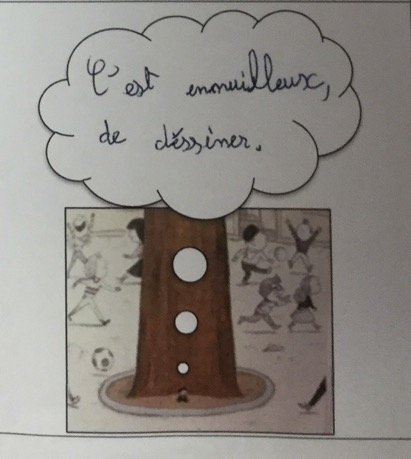 C'est ennuilleux,
de déssiner.